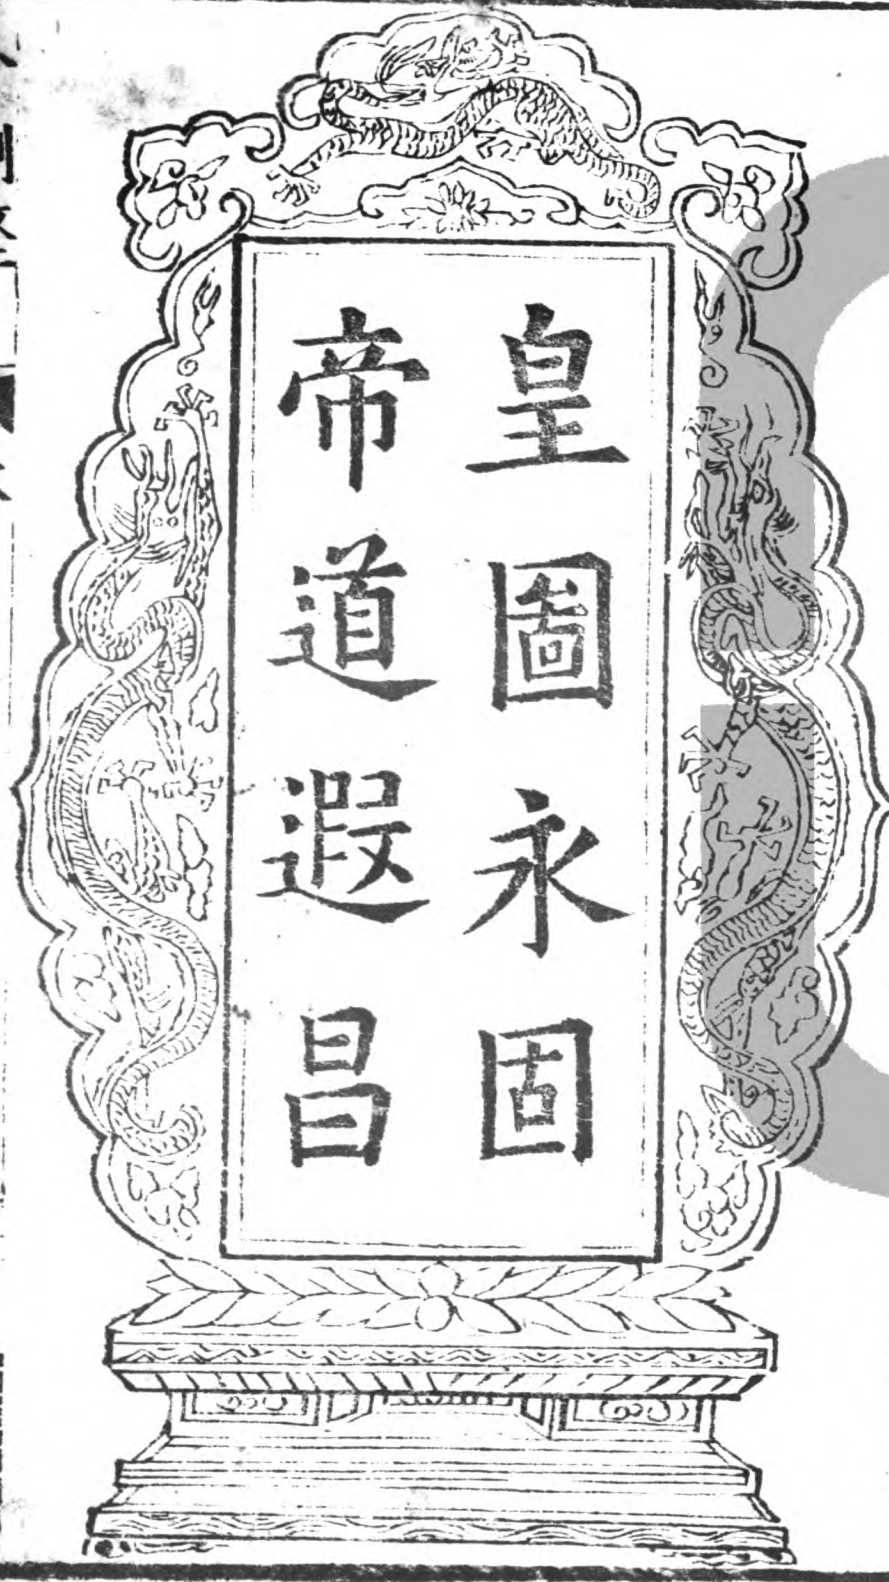 皇圖永固
帝道遐昌